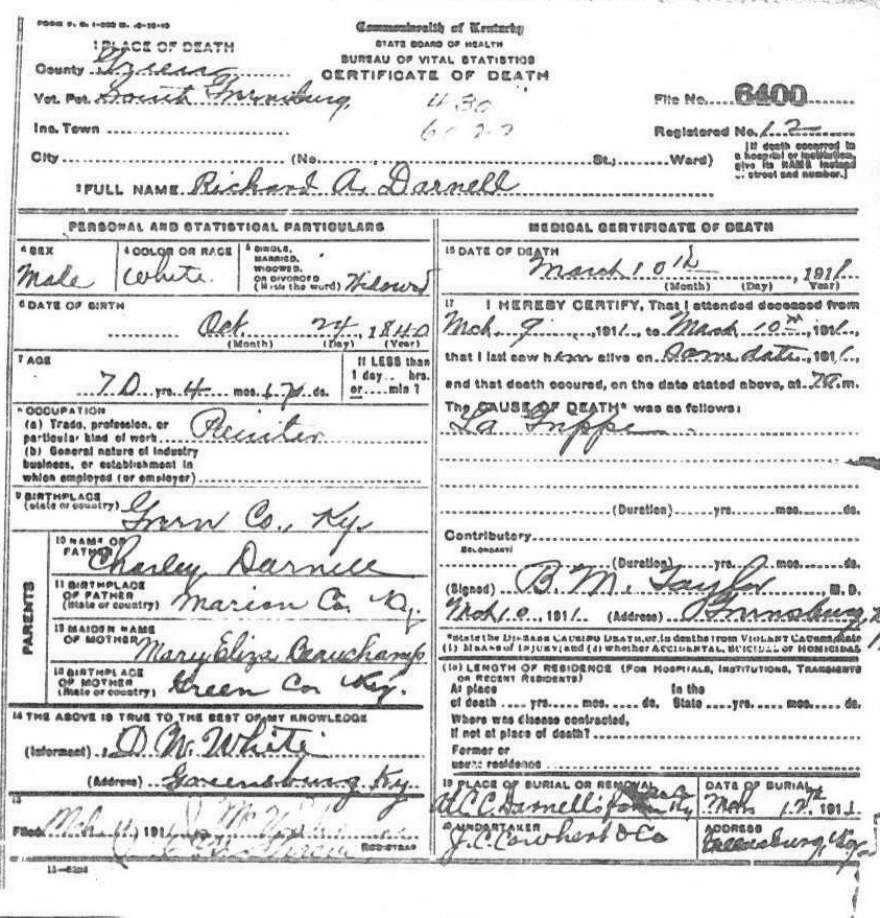 Commonwealth of Kentucky
STATE BOARD OF HEALTH
BUREAU OF VITAL STATISTICS
CERTIFICATE OF DEATH
1 PLACE OF DEATH
County Green
Vot. Pct. South Greensburg
Inc. Town
City (No. , St.; Ward)
File No. 6400
Registered No. 12
[If death occurred in a hospital or institution, give its NAME instead of street and number.]
2 FULL NAME Richard A. Darnell
PERSONAL AND STATISTICAL PARTICULARS
3 SEX
Male
4 COLOR OR RACE
White.
5 SINGLE,
MARRIED,
WIDOWED,
OR DIVORCED
(Write the word) Widowed
6 DATE OF BIRTH
Oct. 24, 1840
(Month) (Day) (Year)
7 AGE
70 yrs. 4 mos. 17 ds.
If LESS than
1 day.. hrs.
or.... min ?
8 OCCUPATION
(a) Trade, profession, or
particular kind of work
(b) General nature of industry
business, or establishment in
which employed (or employer)
9 BIRTHPLACE
(State or country) Green Co., Ky.
PARENTS
10 NAME OF
FATHER
Charley Darnell
11 BIRTHPLACE
OF FATHER
(State or country) Marion Co. Ky
12 MAIDEN NAME
OF MOTHER
Mary Eliza Beauchamp
13 BIRTHPLACE
OF MOTHER
(State or country) Green Co. Ky.
14 THE ABOVE IS TRUE TO THE BEST OF MY KNOWLEDGE
(Informant) D. W. White
(Address) Greensburg Ky
15
Filed Mch. 11, 1911
REGISTRAR
MEDICAL CERTIFICATE OF DEATH
16 DATE OF DEATH
March 10th, 1911
(Month) (Day) Year)
17 I HEREBY CERTIFY, That I attended deceased from
Mch. 9, 1911, to March 10th, 1911,
that I last saw him alive on Same date, 1911,
and that death occured, on the date stated above, at m.
The CAUSE OF DEATH* was as follows:
La Grippe
(Duration) yrs. mos. ds.
Contributory
SECONDARY
(Duration) yrs. mos. ds.
(Signed) B. M. Taylor, M. D.
Mch 10, 1911. (Address) Greensburg
*State the DISEASE CAUSING DEATH, or, in deaths from VIOLENT CAUSES, state
(1) MEANS OF INJURY; and (2) whether ACCIDENTAL, SUICIDAL or HOMICIDAL
(18) LENGTH OF RESIDENCE (FOR HOSPITALS, INSTITUTIONS, TRANSIENTS
OR RECENT RESIDENTS)
At place In the
of death .... yrs. mos. ds. State .... yrs. mos. ds.
Where was disease contracted,
If not at place of death?
Former or
usual residence
19 PLACE OF BURIAL OR REMOVAL
Darnell's
DATE OF BURIAL
Mch 12th, 1911
20 UNDERTAKER
J. C. Cowherd & Co
ADDRESS
Greensburg, Ky.